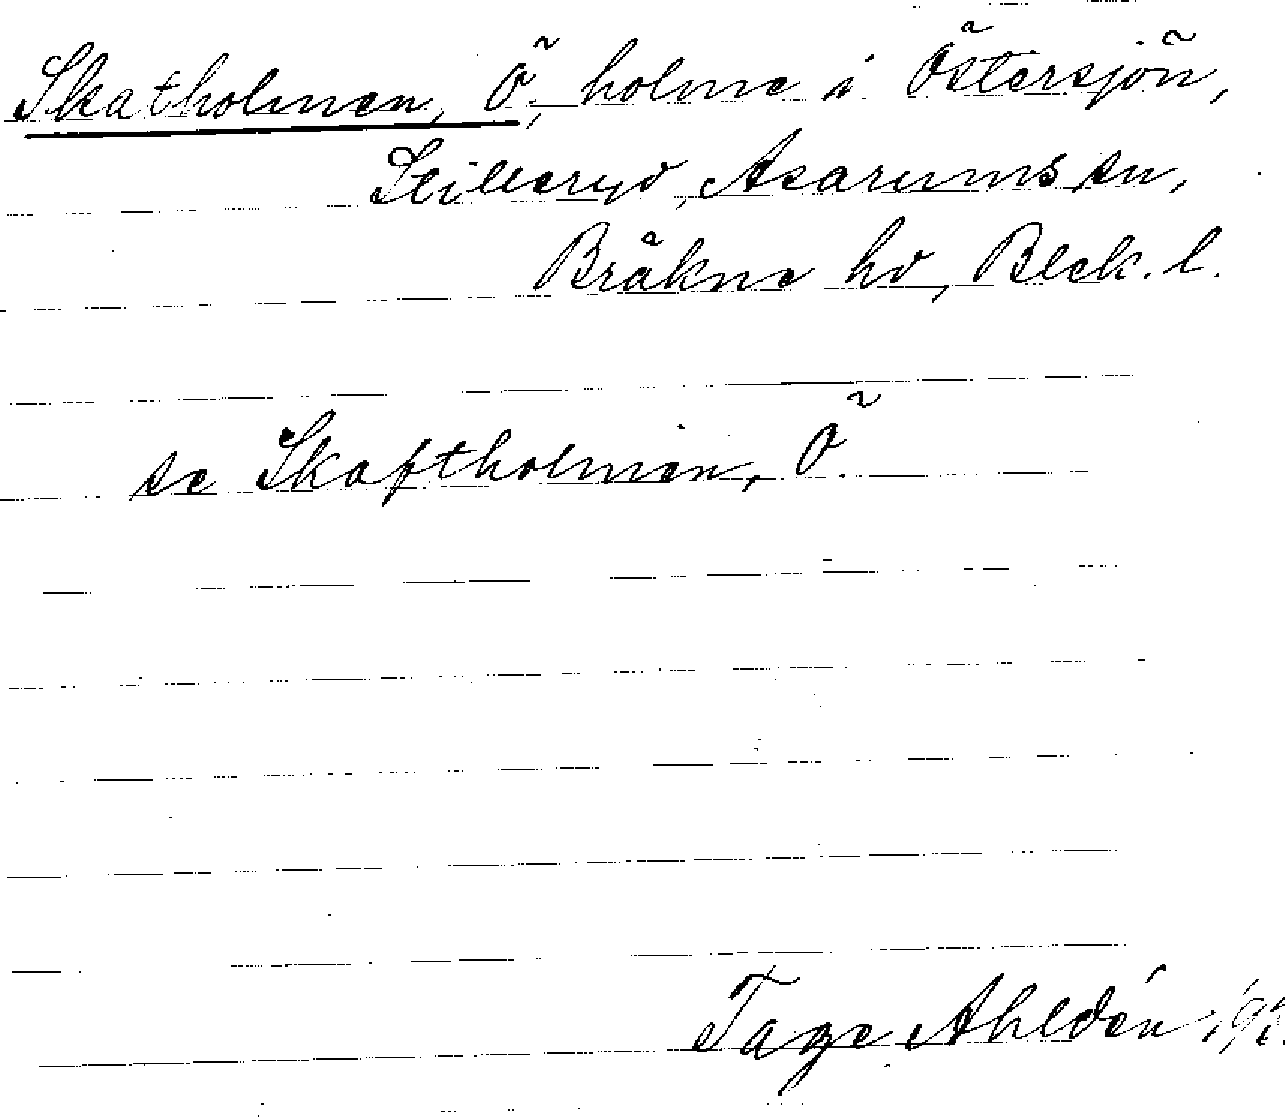 Skatholmen, Ö, holme i Östersjön,
Stilleryd, Asarums sn,
Bräkne hd, Blek. l.
se Skaftholmen, Ö
Tage Ahldén